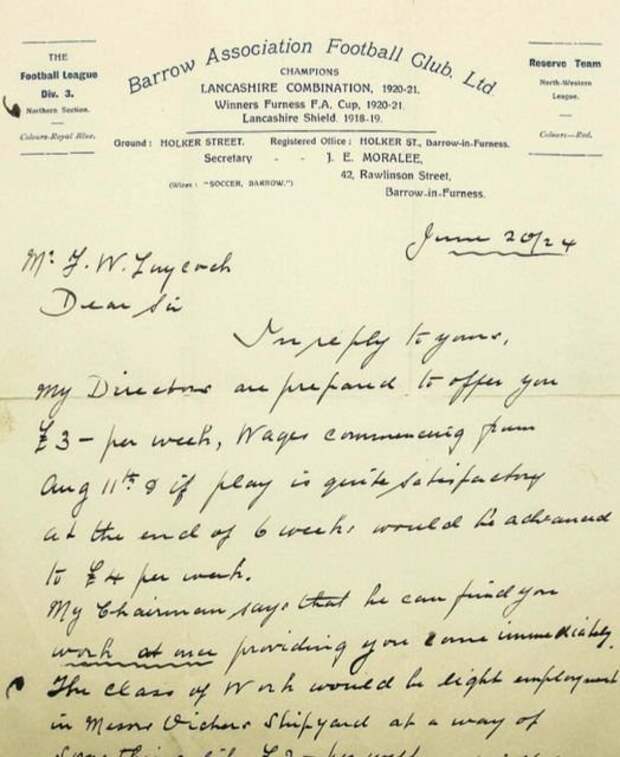 THE
Football League
Div. 3.
Northern Section.
Colours-Royal Blue.
Barrow Association Football Club, Ltd.
CHAMPIONS
LANCASHIRE COMBINATION, 1920-21.
Winners Furness F.A. Cup, 1920-21.
Lancashire Shield. 1918-19.
Reserve Team
North-Western
League.
Colours—Red.
Ground: HOLKER STREET. Registered Office: HOLKER ST., Barrow-in-Furness.
Secretary - - J. E. MORALEE,
(Wires: "SOCCER, BARROW.") 42, Rawlinson Street,
Barrow-in-Furness.
June 20/24
Mr. F. W. Laycock
Dear Sir
In reply to yours,
My Directors are prepared to offer you
£3 - per week, Wages commencing from
Aug 11th & if play is quite satisfactory
at the end of 6 weeks would be advanced
to £4 per week.
My Chairman says that he can find you
work at once providing you come immediately.
The class of Work would be light employment
in Messrs Vickers Shipyard at a way of
something like £2 - per week